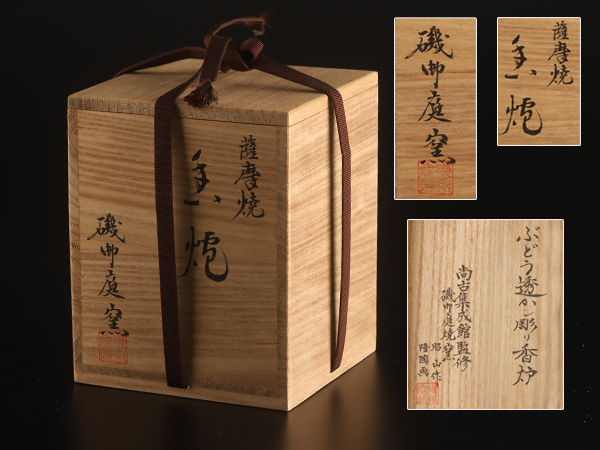 薩摩焼
香爐
磯御庭窯
磯御庭窯
薩摩焼
香爐
ぶどう透かし彫り香炉
尚古集成館監修
磯御庭焼窯
隆陶画